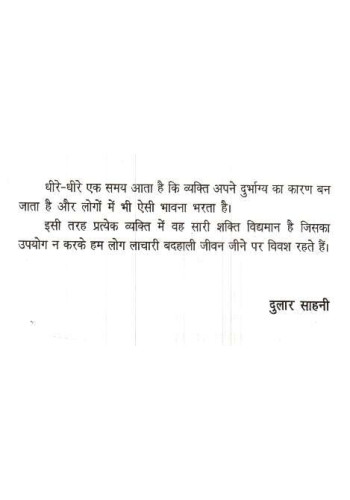 धीरे-धीरे एक समय आता है कि व्यक्ति अपने दुर्भाग्य का कारण बन
जाता है और लोगों में भी ऐसी भावना भरता है।
इसी तरह प्रत्येक व्यक्ति में वह सारी शक्ति विद्यमान है जिसका
उपयोग न करके हम लोग लाचारी बदहाली जीवन जीने पर विवश रहते हैं।
दुलार साहनी